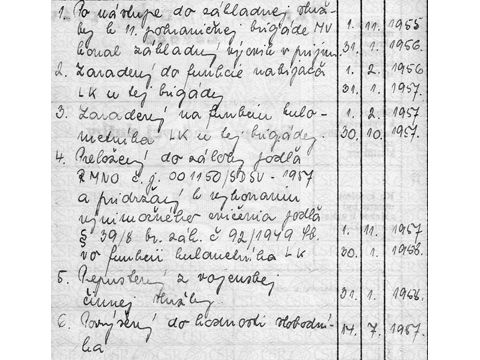 1. Po nástupe do základnej služ-
by k 11. pohraničnej brigáde MV 1. 11. 1955
konal základný výcvik v prijím. 31. 1. 1956.
2. Zaradený do funkcie nabíjača 1. 2. 1956
LK u tej brigády 31. 1. 1957.
3. Zaradený na funkciu gulo- 1. 2. 1957
metníka LK u tej brigády. 30. 10. 1957.
4. Preložený do zálohy podľa
RMNO č. j. 001150/SDSV-1957
a pridržaný k vykonaniu
výnimočného cvičenia podľa
§ 39/8 br. zák. č 92/1949 Sb. 1. 11. 1957
vo funkcii kulometníka LK 30. 1. 1958.
5. Prepustený z vojenskej
činnej služby. 31. 1. 1958.
6. Povýšený do hodnosti slobodní- 14. 7. 1957.
ka